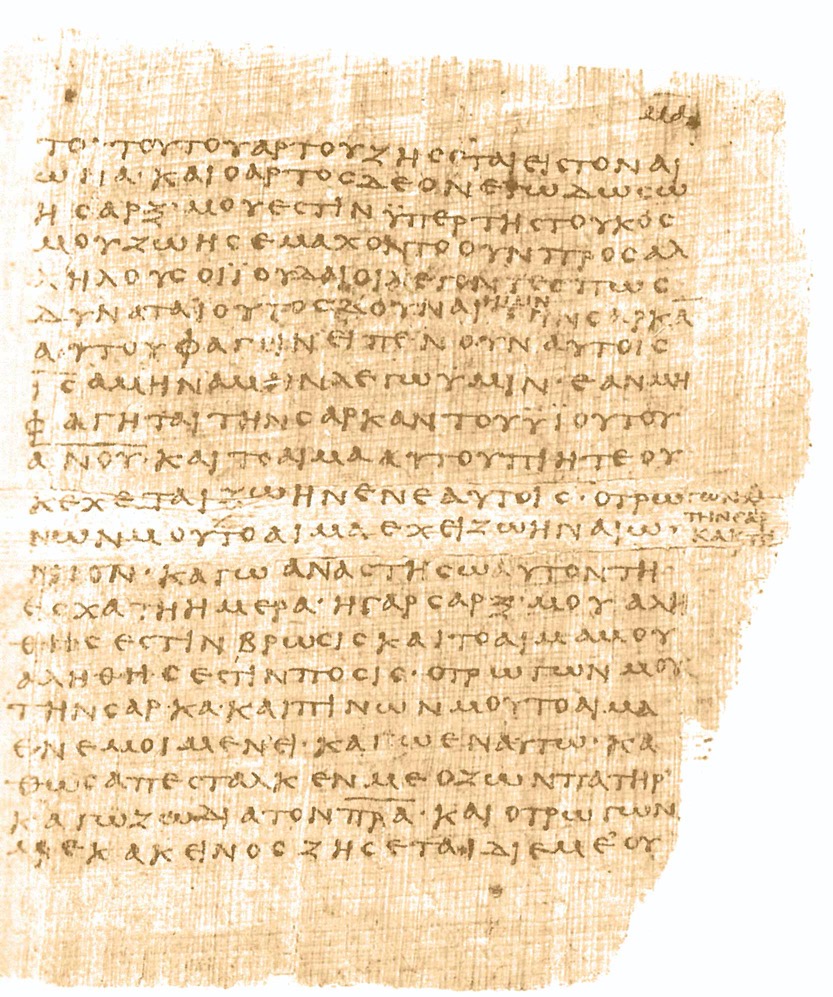 μδ
το· τουτουαρτουζησεταιειστοναι
ωνα· καιοαρτοςδεονεγωδωσω
ησαρξ· μουεστινϋπερτηςτουκοσ
μουζωης εμαχοντοουνπροσαλ
ληλουςοιϊουδαιοιλεγοντεςπως
δυναταιουτοςδουναιημιντηνσαρκα
αυτουφαγειν ειπενουναυτοις
ις αμηναμηνλεγωυμιν· εανμη
φαγηταιτηνσαρκαντουϋϊουτου
ανου· καιτοαιμααυτουπιητεου
κεχεταιζωηνενεαυτοις· οτρωγωνα
τηνσαρ
κακαιπι
νωνμουτοαιμαεχειζωηναιω·
νιον· καγωαναστησωαυτοντη
εσχατηημερα· ηγαρσαρξ· μουαλη
θηςεστινβρωσιςκαιτοαιμαμου
αληθηςεστινποσις· οτρωγωνμου
τηνσαρκα·καιπινωνμουτοαιμα
ενεμοιμενει· καγωεναυτω· κα
θωςαπεσταλκενμεοζωνπατηρ
καγωζωδιατονπρα· καιοτρωγων
μεκακεινοςζησεταιδιεμε ου